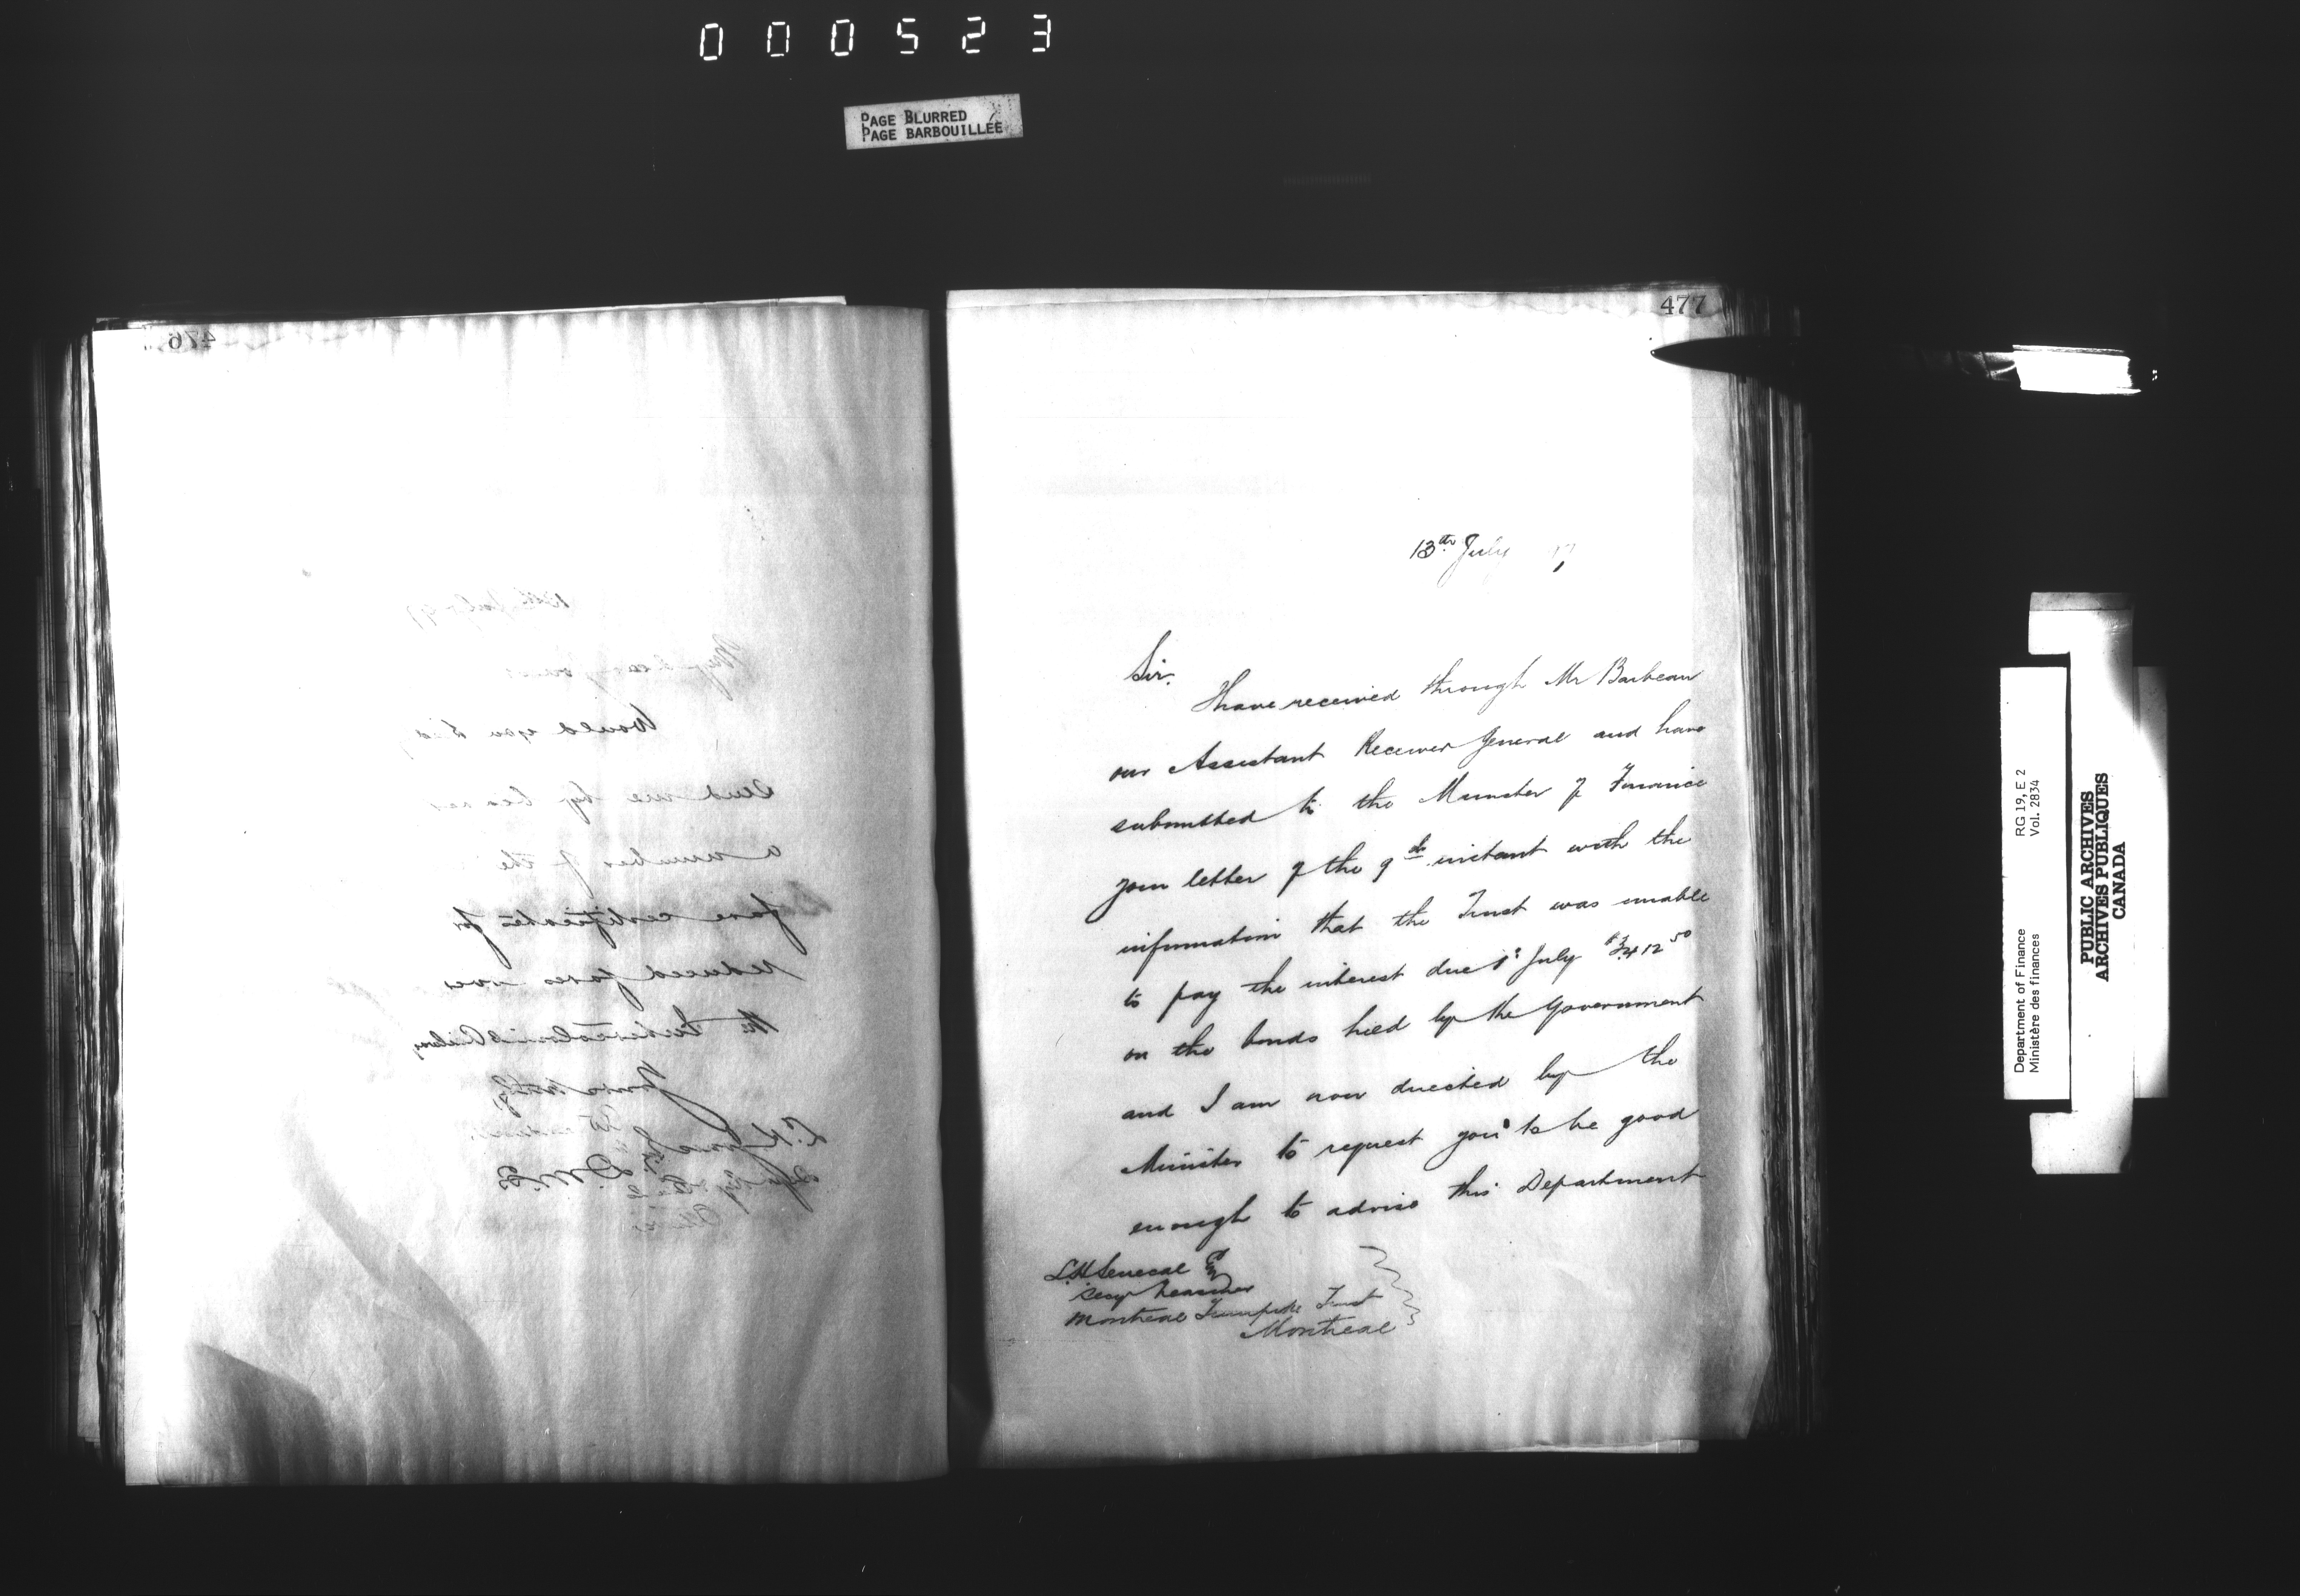 000523
PAGE BLURRED
PAGE BARBOUILLÉE
476
12th July 97
My dear
Would you
send me by
a number of the
fare certificates for
reduced fares over
the Intercolonial Railway
Yours truly,
D.M.F.
477
13th July
Sir.
I have received through Mr Barbeau
our Assistant Receiver General and have
submitted to the Minister of Finance
your letter of the 9th instant with the
information that the Trust was unable
to pay the interest due 1st July
on the bonds held by the Government
and I am now directed by the
Minister to request you to be good
enough to advise this Department
L.H Senecal Esq
Secy Treasurer
Montreal Turnpike Trust
Montreal
Department of Finance
Ministère des finances
RG 19, E 2
Vol. 2834
PUBLIC ARCHIVES
ARCHIVES PUBLIQUES
CANADA